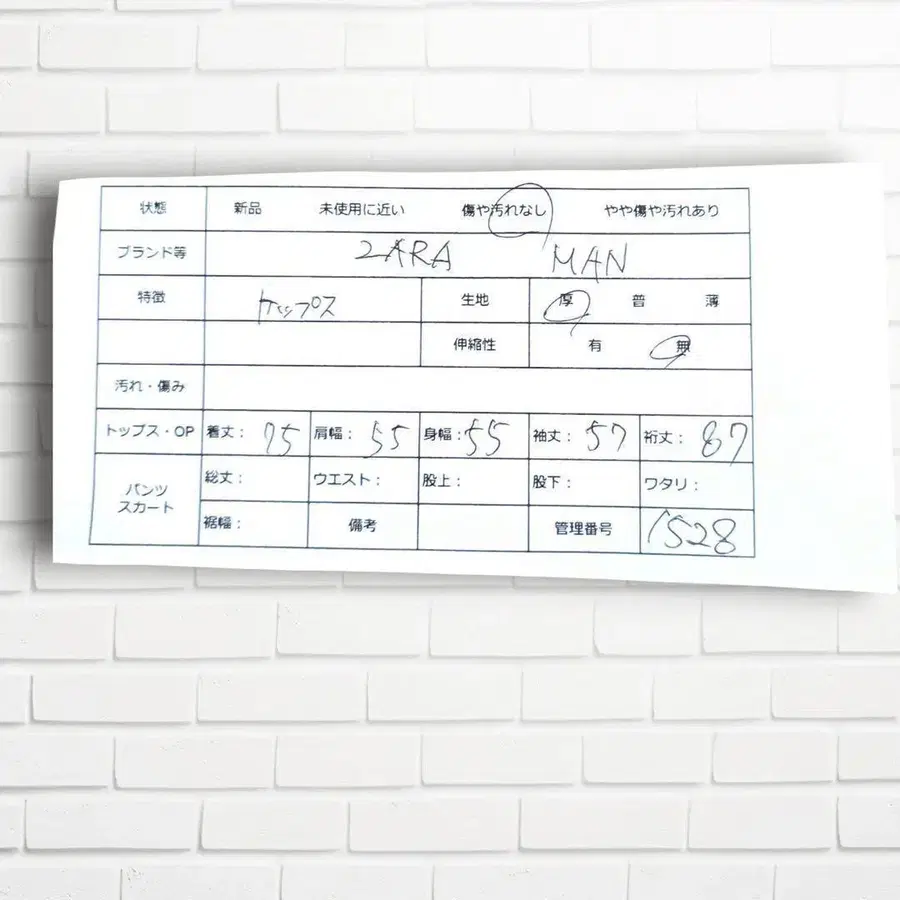 状態 新品 未使用に近い 傷や汚れなし やや傷や汚れあり
ブランド等 ZARA MAN
特徴 トップス 生地 厚 普 薄
伸縮性 有 無
汚れ・傷み
トップス・OP 着丈: 75 肩幅: 55 身幅: 55 袖丈: 57 裄丈: 87
パンツ
スカート
総丈: ウエスト: 股上: 股下: ワタリ:
裾幅: 備考 管理番号 1528